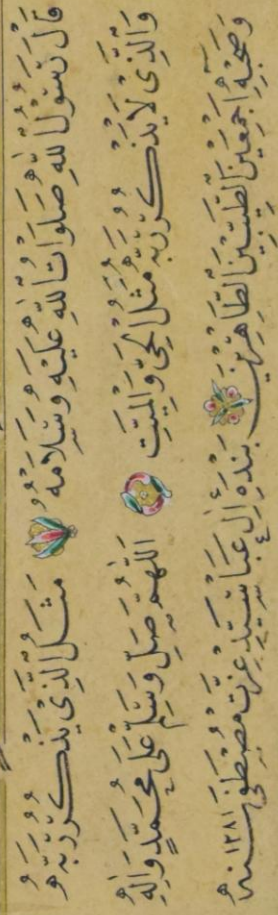 قَالَ رَسُولُ اللهِ صَلَوَاتُ اللهِ عَلَيْهِ وَسَلَامُهُ مَثَلُ الَّذِي يَذْكُرُ رَبَّهُ
وَالَّذِي لَا يَذْكُرُ رَبَّهُ مَثَلُ الْحَيِّ وَالْمَيِّتِ اللّٰهُمَّ صَلِّ وَسَلِّمْ عَلَى مُحَمَّدٍ وَآلِهِ
وَصَحْبِهِ أَجْمَعِينَ الطَّيِّبِينَ الطَّاهِرِينَ بَنْدَهٔ آلِ عَبَا سَيِّد عِزَّت مُصْطَفَى سنه ١٢٨١